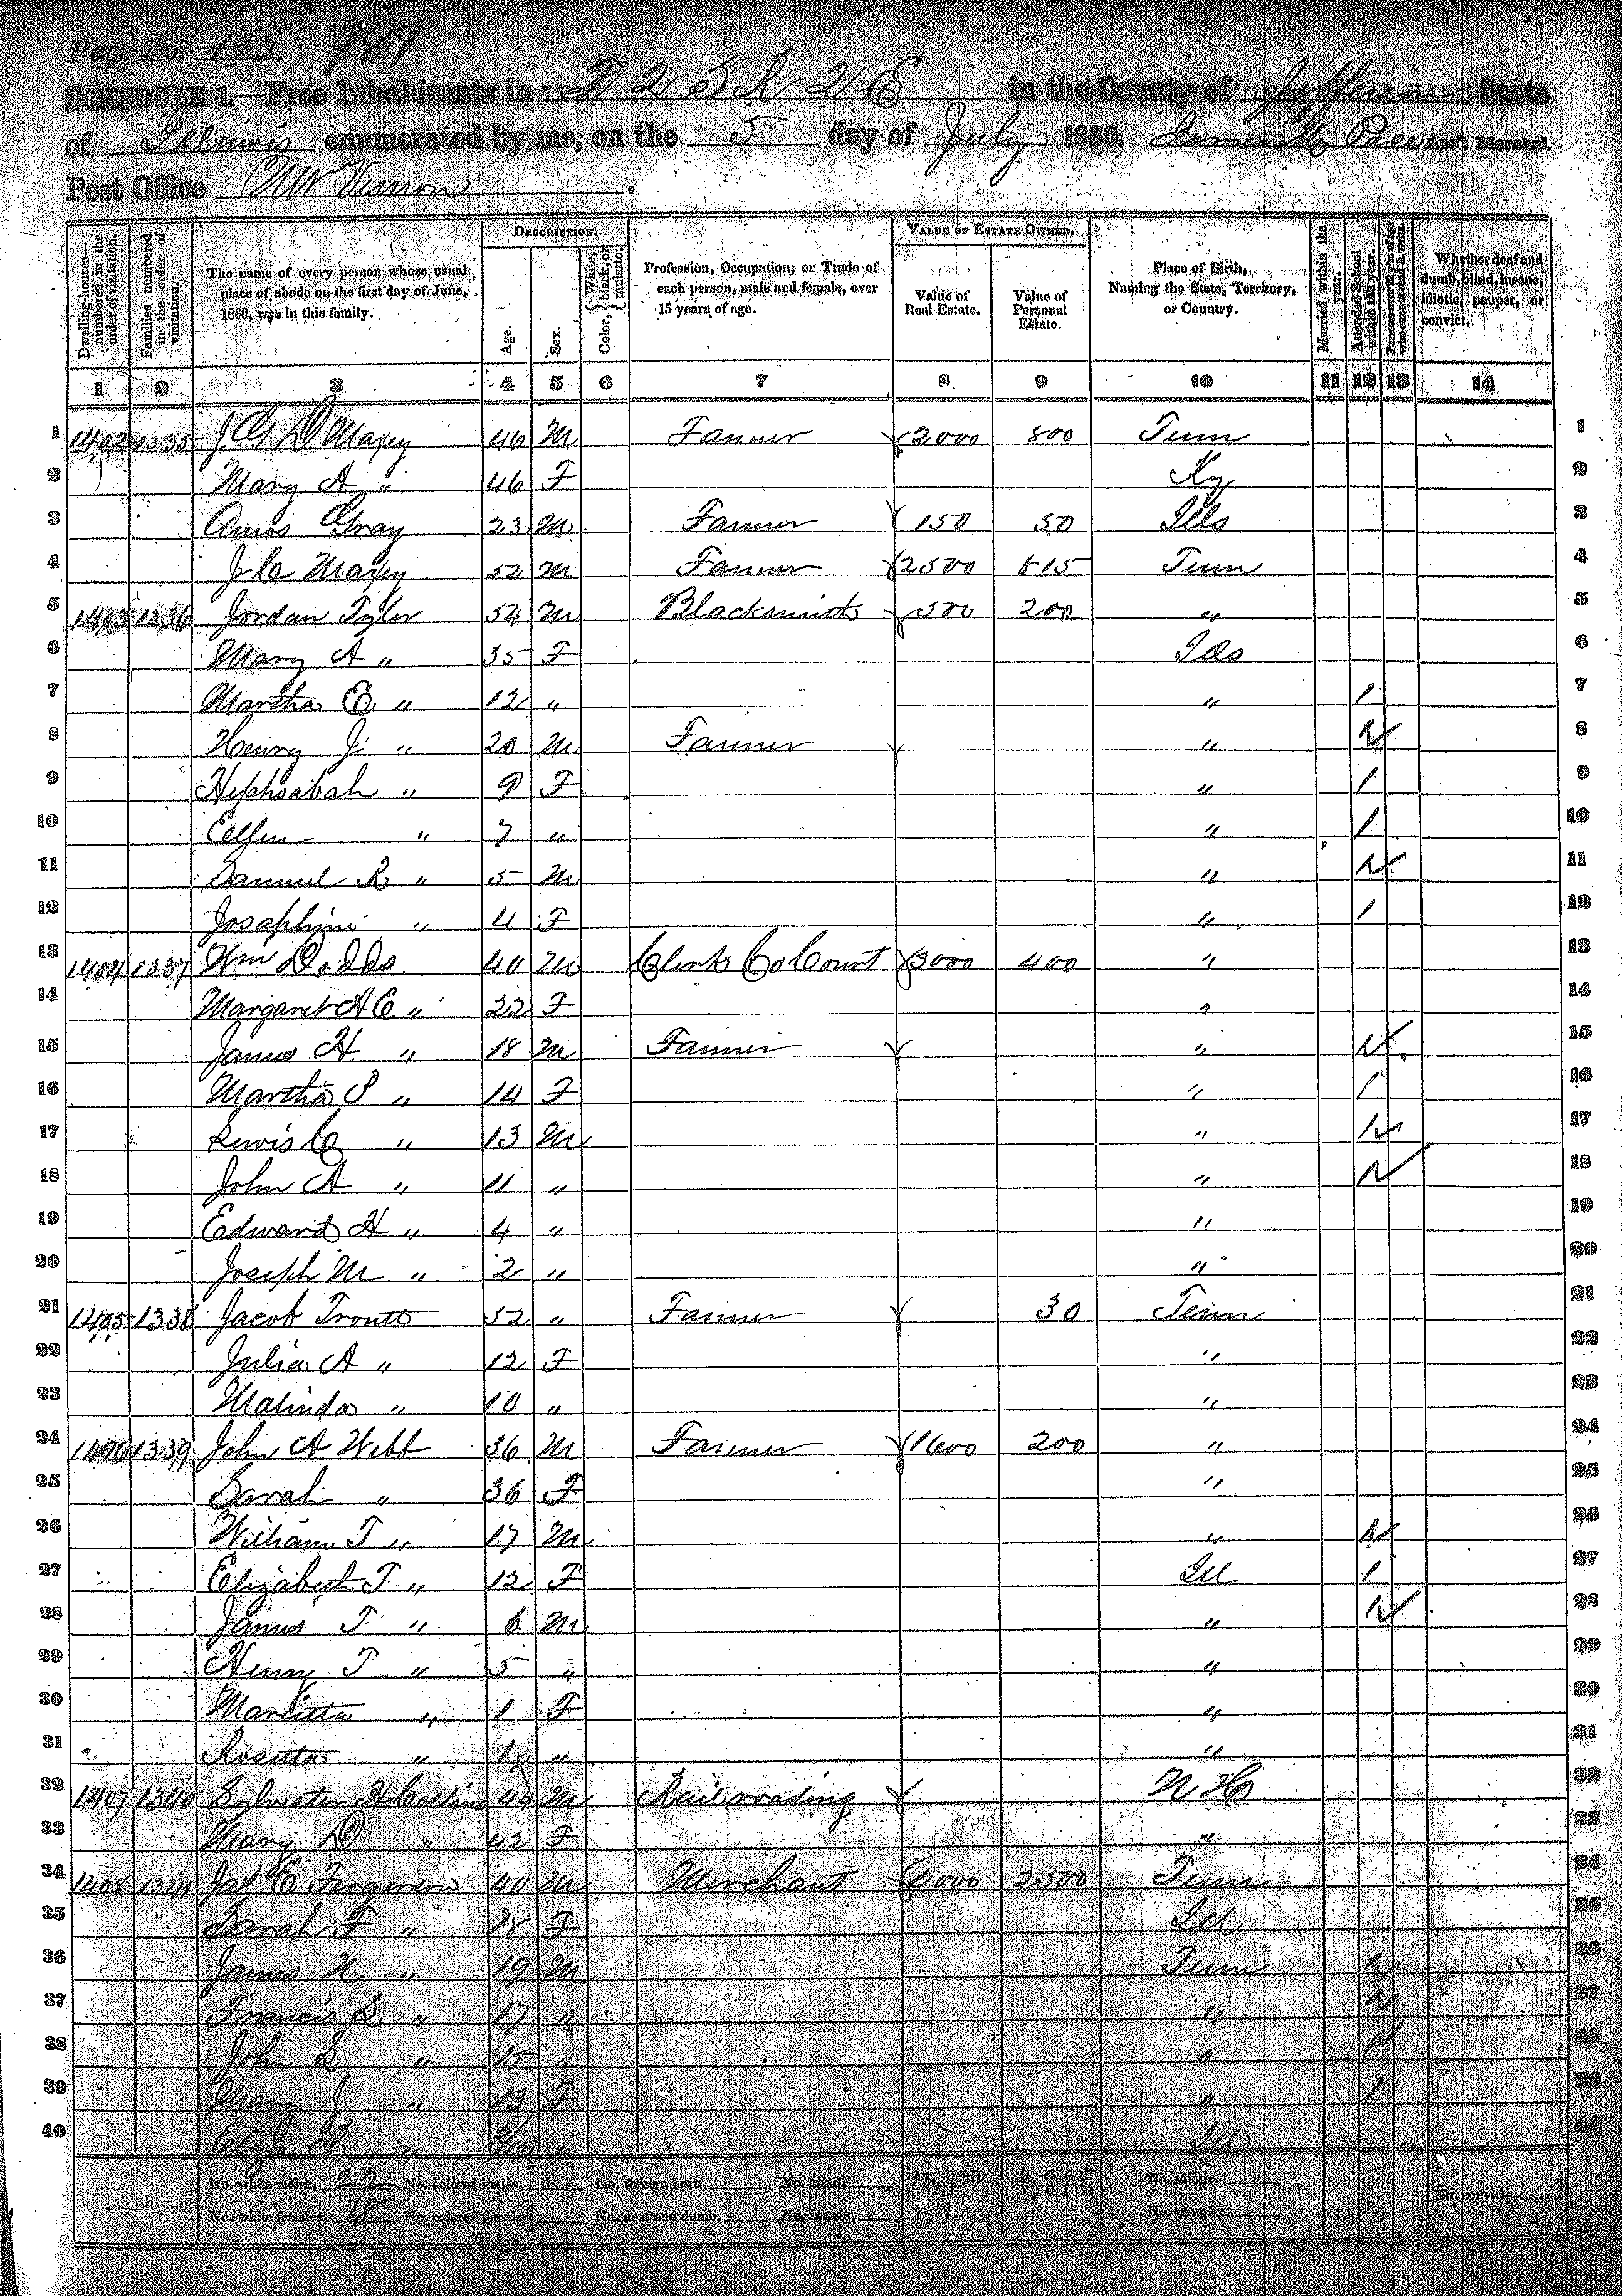 Page No. 193 981
SCHEDULE 1.—Free Inhabitants in T 2 S R 2 E in the County of Jefferson State
of Illinois enumerated by me, on the 5 day of July 1860. Pace Ass't Marshal.
Post Office Mt Vernon.
Dwelling-houses—numbered in the order of visitation.
Families numbered in the order of visitation.
The name of every person whose usual place of abode on the first day of June, 1860, was in this family.
DESCRIPTION.
Age.
Sex.
Color, {White, black, or mulatto.
Profession, Occupation, or Trade of each person, male and female, over 15 years of age.
VALUE OF ESTATE OWNED.
Value of Real Estate.
Value of Personal Estate.
Place of Birth, Naming the State, Territory, or Country.
Married within the year.
Attended School within the year.
Persons over 20 y'rs of age who cannot read & write.
Whether deaf and dumb, blind, insane, idiotic, pauper, or convict.
1 2 3 4 5 6 7 8 9 10 11 12 13 14
1 1402 1335 J G D Maxey 46 M Farmer 2000 800 Tenn 1
2 Mary A " 46 F Ky 2
3 Amos Gray 23 M Farmer 150 50 Ills 3
4 J C Maxey 52 M Farmer 2500 815 Tenn 4
5 1403 1336 Jordan Tyler 54 M Blacksmith 500 200 " 5
6 Mary A " 35 F Ills 6
7 Martha E " 12 " " 1 7
8 Henry J " 20 M Farmer " 1 8
9 Hephsabah " 9 F " 1 9
10 Ellen " 7 " " 1 10
11 Samuel R " 5 M " 1 11
12 Josaphine " 4 F " 1 12
13 1404 1337 Wm Dodds 40 M Clerk Co Court 3000 400 " 13
14 Margaret A E " 32 F " 14
15 James H " 18 M Farmer " 1 15
16 Martha S " 14 F " 1 16
17 Lewis C " 13 M " 1 17
18 John A " 11 " " 1 18
19 Edward H " 4 " " 19
20 Joseph M " 2 " " 20
21 1405 1338 Jacob Troutt 52 " Farmer 30 Tenn 21
22 Julia A " 12 F " 22
23 Malinda " 10 " " 23
24 1406 1339 John A Webb 36 M Farmer 1600 200 " 24
25 Sarah " 36 F " 25
26 William T " 17 M " 1 26
27 Elizabeth T " 12 F Ill 1 27
28 James T " 6 M " 1 28
29 Henry T " 5 " " 29
30 Marietta " 1 F " 30
31 Rosetta " 1 " " 31
32 1407 1340 Sylvester H Collins 44 M Railroading N H 32
33 Mary D " 42 F " 33
34 1408 1341 Jas E Fergerson 40 M Merchant 4000 2500 Tenn 34
35 Sarah F " 28 F Ill 35
36 James H " 19 M Tenn 1 36
37 Francis L " 17 " " 1 37
38 John L " 15 " " 1 38
39 Mary J " 13 F " 1 39
40 Eliza " " Ill 40
No. white males, 22 No. colored males, No. foreign born, No. blind, 13,750 4,995 No. idiotic, No. convicts,
No. white females, 18 No. colored females, No. deaf and dumb, No. insane, No. paupers,